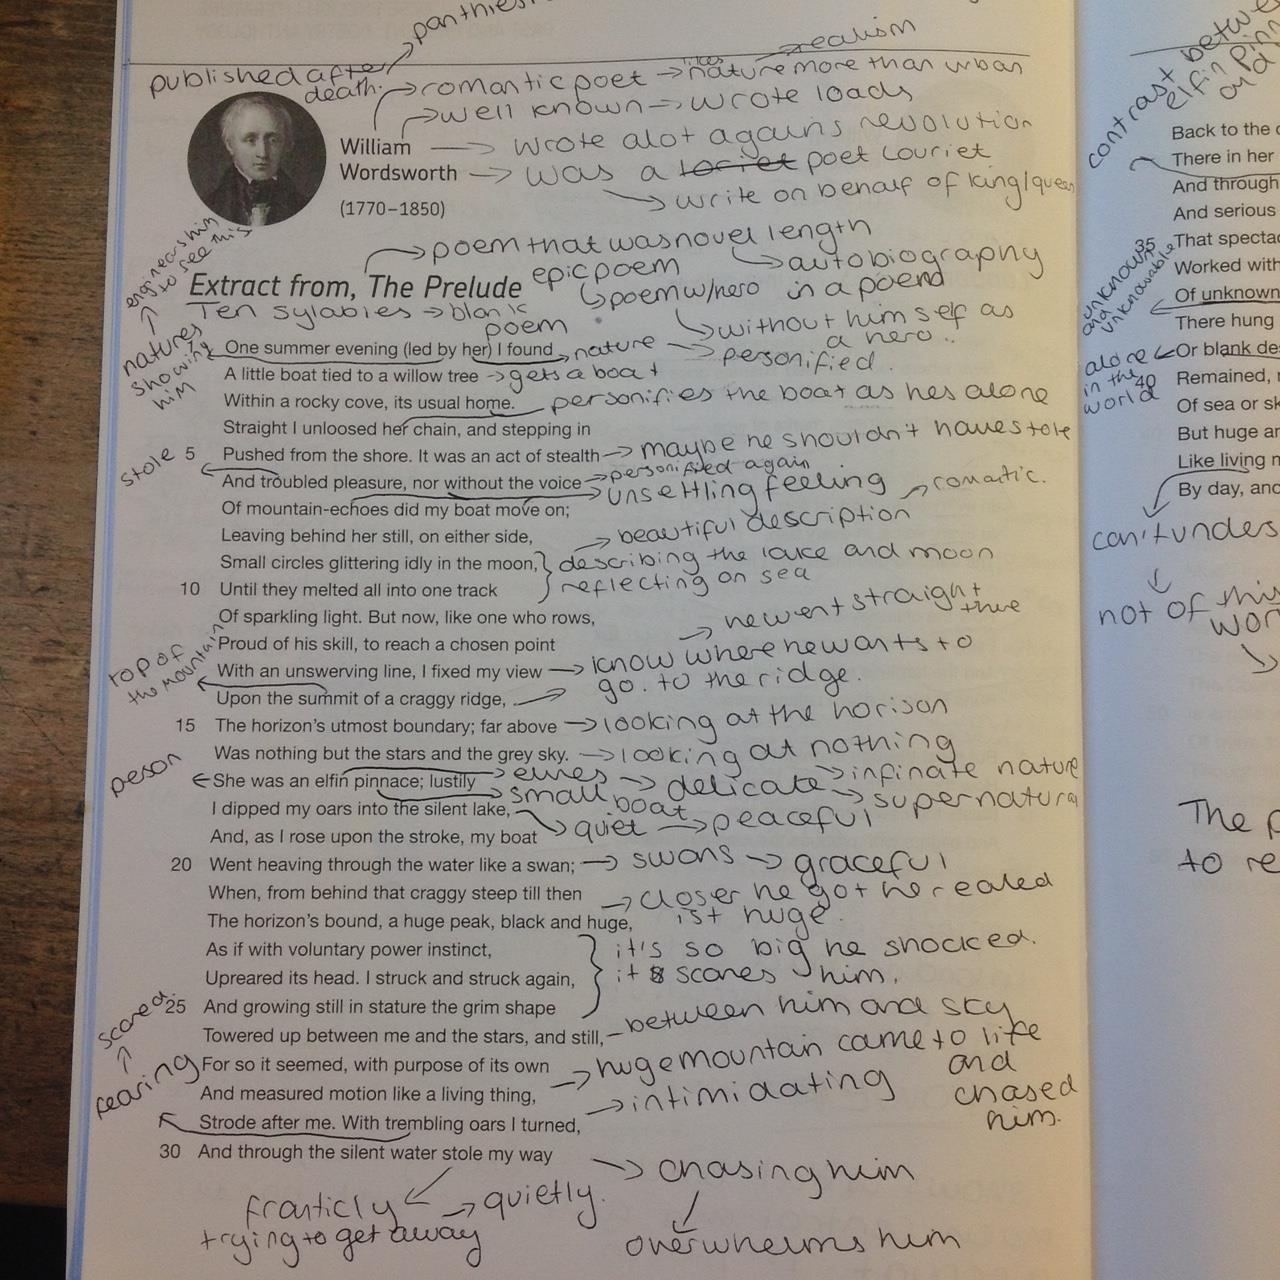 published after death.
romantic poet → likes nature more than urban
realism
well known → wrote loads
William → wrote alot agains revolution
Wordsworth → was a poet louriet
(1770–1850)
→ write on behalf of king/queen
→ poem that was novel length
→ autobiography in a poem
Extract from, The Prelude
epic poem
→ poem w/ hero
→ without himself as a hero..
Ten sylables → blank poem
natures showing him
to see this
One summer evening (led by her) I found → nature → personified.
A little boat tied to a willow tree → gets a boat
Within a rocky cove, its usual home. personifies the boat as hes alone
Straight I unloosed her chain, and stepping in
stole 5 Pushed from the shore. It was an act of stealth → maybe he shouldn't have stole
And troubled pleasure, nor without the voice → personified again
→ unsettling feeling → romantic.
Of mountain-echoes did my boat move on;
Leaving behind her still, on either side, → beautiful description
Small circles glittering idly in the moon, describing the lake and moon
10 Until they melted all into one track reflecting on sea
Of sparkling light. But now, like one who rows,
Proud of his skill, to reach a chosen point → he went straight there
top of the mountain
With an unswerving line, I fixed my view → know where he wants to
Upon the summit of a craggy ridge, → go. to the ridge.
15 The horizon's utmost boundary; far above → looking at the horison
Was nothing but the stars and the grey sky. → looking at nothing
person ← She was an elfin pinnace; lustily → elves → delicate → infinate nature
→ small boat → supernatural
I dipped my oars into the silent lake, → quiet → peaceful
And, as I rose upon the stroke, my boat
20 Went heaving through the water like a swan; → swans → graceful
When, from behind that craggy steep till then → closer he got he realed
The horizon's bound, a huge peak, black and huge, ist huge.
As if with voluntary power instinct, it's so big he shocked.
Upreared its head. I struck and struck again, it scares him.
25 And growing still in stature the grim shape
Towered up between me and the stars, and still, – between him and sky
scared.
fearing
For so it seemed, with purpose of its own → huge mountain came to life and chased him.
And measured motion like a living thing,
Strode after me. With trembling oars I turned, → intimidating
30 And through the silent water stole my way → chasing him
franticly trying to get away → quietly.
overwhelms him
contrast between elfin
Back to the
There in her
And through
And serious
35 That specta
Worked with
Of unknown
unknown and unknowable
There hung
alone in the world ← Or blank de
40 Remained,
Of sea or sk
But huge an
Like living
By day, and
can't unders
not of this wor
The p
to re